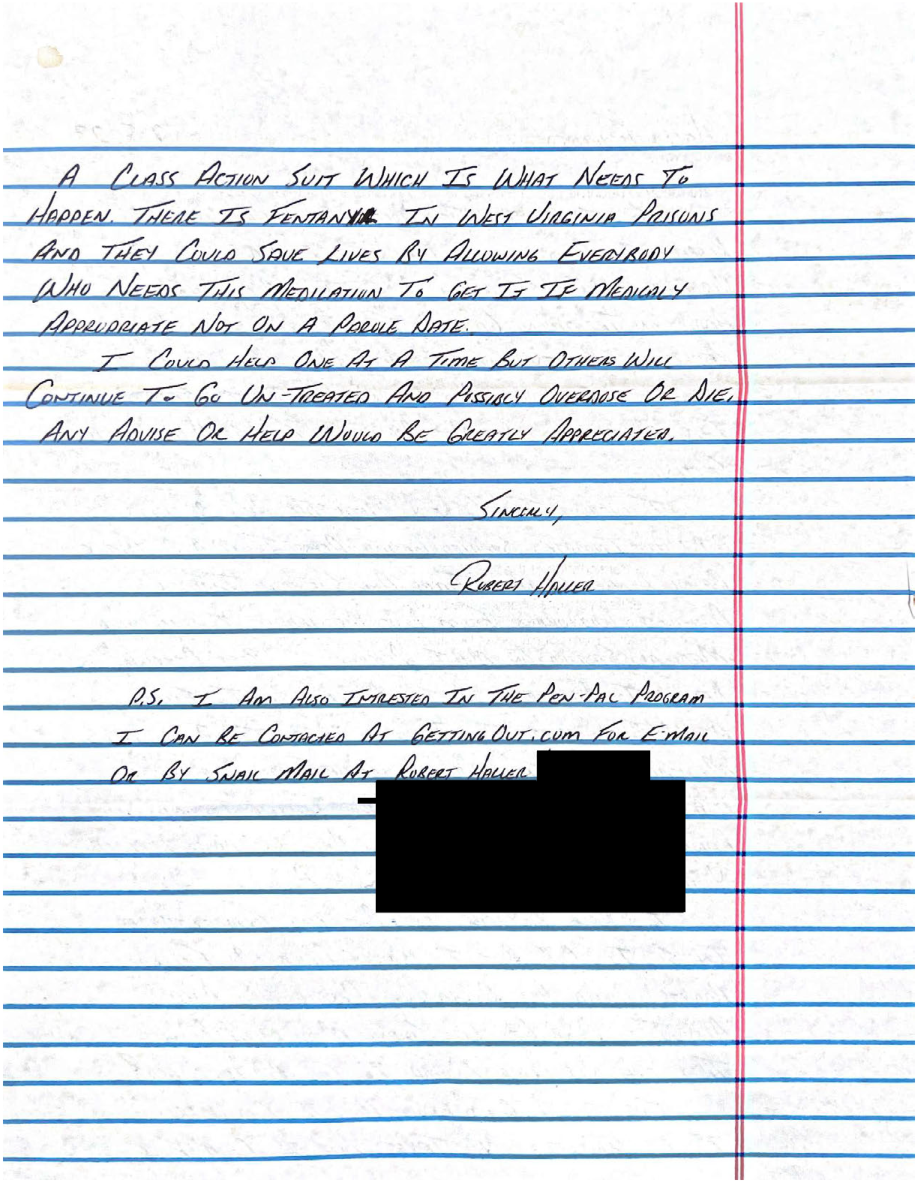 A CLASS ACTION SUIT WHICH IS WHAT NEEDS TO
HAPPEN. THERE IS FENTANYL IN WEST VIRGINIA PRISONS
AND THEY COULD SAVE LIVES BY ALLOWING EVERYBODY
WHO NEEDS THIS MEDICATION TO GET IT IF MEDICALY
APPROPRIATE NOT ON A PAROLE DATE.
I COULD HELP ONE AT A TIME BUT OTHERS WILL
CONTINUE TO GO UN-TREATED AND POSSIBLY OVERDOSE OR DIE.
ANY ADVISE OR HELP WOULD BE GREATLY APPRECIATED.
SINCERLY,
ROBERT HALLER
P.S. I AM ALSO INTRESTED IN THE PEN-PAL PROGRAM
I CAN BE CONTACTED AT GETTINGOUT.COM FOR E-MAIL
OR BY SNAIL MAIL AT ROBERT HALLER